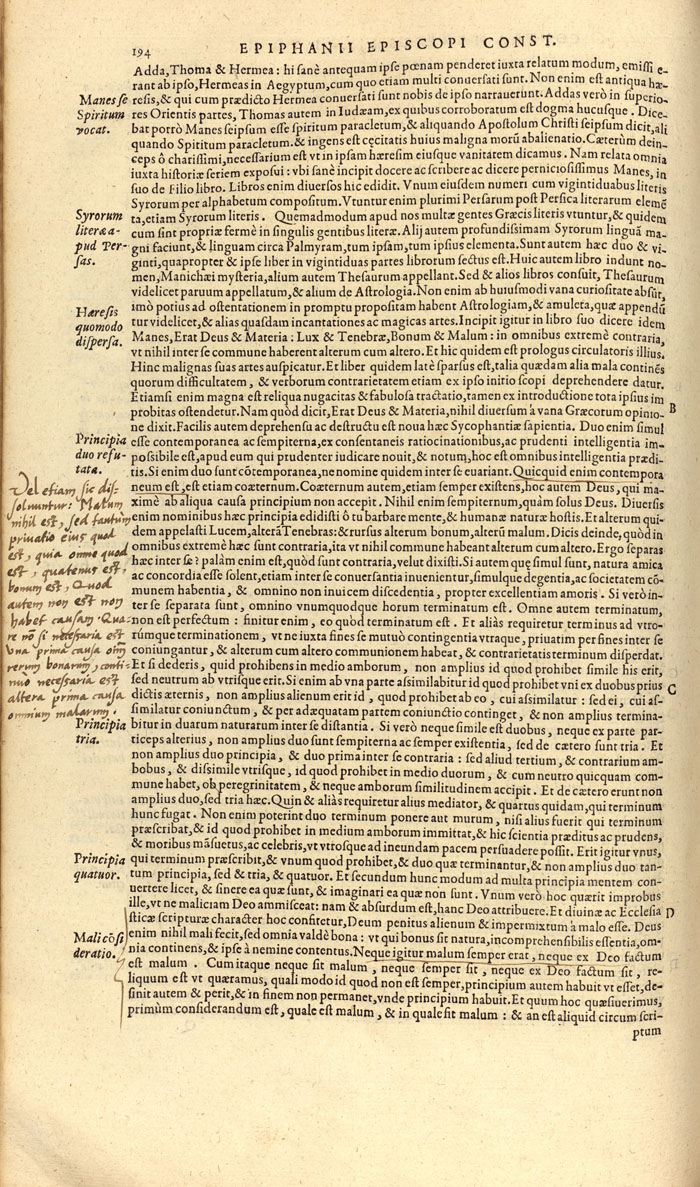 194
EPIPHANII EPISCOPI CONST.
Adda, Thoma & Hermea: hi sanè antequam ipse pœnam penderet iuxta relatum modum, emissi e-
rant ab ipso, Hermeas in Aegyptum, cum quo etiam multi conuersati sunt. Non enim est antiqua hæ-
resis, & qui cum prædicto Hermea conuersati sunt nobis de ipso narrauerunt. Addas verò in superio-
res Orientis partes, Thomas autem in Iudæam, ex quibus corroboratum est dogma hucusque. Dice-
bat porrò Manes seipsum esse spiritum paracletum, & aliquando Apostolum Christi seipsum dicit, ali
quando Spititum paracletum. & ingens est cęcitatis huius maligna morū abalienatio. Cæterùm dein-
ceps ô charissimi, necessarium est vt in ipsam hæresim eiusque vanitatem dicamus. Nam relata omnia
iuxta historiæ seriem exposui: vbi sanè incipit docere ac scribere ac dicere perniciosissimus Manes, in
suo de Filio libro. Libros enim diuersos hic edidit. Vnum eiusdem numeri cum vigintiduabus literis
Syrorum per alphabetum compositum. Vtuntur enim plurimi Persarum post Persica literarum elemē
ta, etiam Syrorum literis. Quemadmodum apud nos multæ gentes Græcis literis vtuntur, & quidem
cum sint propriæ fermè in singulis gentibus literæ. Alij autem profundissimam Syrorum linguā ma-
gni faciunt, & linguam circa Palmyram, tum ipsam, tum ipsius elementa. Sunt autem hæc duo & vi-
ginti, quapropter & ipse liber in vigintiduas partes librorum sectus est. Huic autem libro indunt no-
men, Manichæi mysteria, alium autem Thesaurum appellant. Sed & alios libros consuit, Thesaurum
videlicet paruum appellatum, & alium de Astrologia. Non enim ab huiusmodi vana curiositate absūt,
imò potius ad ostentationem in promptu propositam habent Astrologiam, & amuleta, quæ appendū
tur videlicet, & alias quasdam incantationes ac magicas artes. Incipit igitur in libro suo dicere idem
Manes, Erat Deus & Materia: Lux & Tenebræ, Bonum & Malum: in omnibus extremè contraria,
vt nihil inter se commune haberent alterum cum altero. Et hic quidem est prologus circulatoris illius.
Hinc malignas suas artes auspicatur. Et liber quidem latè sparsus est, talia quædam alia mala continēs
quorum difficultatem, & verborum contrarietatem etiam ex ipso initio scopi deprehendere datur.
Etiamsi enim magna est reliqua nugacitas & fabulosa tractatio, tamen ex introductione tota ipsius im
probitas ostendetur. Nam quòd dicit, Erat Deus & Materia, nihil diuersum à vana Græcotum opinio-
ne dixit. Facilis autem deprehensu ac destructu est noua hæc Sycophantiæ sapientia. Duo enim simul
esse contemporanea ac sempiterna, ex consentaneis ratiocinationibus, ac prudenti intelligentia im-
possibile est, apud eum qui prudenter iudicare nouit, & notum, hoc est omnibus intelligentia prædi-
tis. Si enim duo sunt cōtemporanea, ne nomine quidem inter se euariant. Quicquid enim contempora
neum est, est etiam coæternum. Coæternum autem, etiam semper existens, hoc autem Deus, qui ma-
ximè ab aliqua causa principium non accepit. Nihil enim sempiternum, quàm solus Deus. Diuersis
enim nominibus hæc principia edidisti ô tu barbare mente, & humanæ naturæ hostis. Et alterum qui-
dem appelasti Lucem, alterā Tenebras: & rursus alterum bonum, alterū malum. Dicis deinde, quòd in
omnibus extremè hæc sunt contraria, ita vt nihil commune habeant alterum cum altero. Ergo separas
hæc inter se? palàm enim est, quòd sunt contraria, velut dixisti. Si autem quę simul sunt, natura amica
ac concordia esse solent, etiam inter se conuersantia inuenientur, simulque degentia, ac societatem cō-
munem habentia, & omnino non inuicem discedentia, propter excellentiam amoris. Si verò in-
ter se separata sunt, omnino vnumquodque horum terminatum est. Omne autem terminatum,
non est perfectum: finitur enim, eo quòd terminatum est. Et aliàs requiretur terminus ad vtro-
rúmque terminationem, vt ne iuxta fines se mutuò contingentia vtraque, priuatim per fines inter se
coniungantur, & alterum cum altero communionem habeat, & contrarietatis terminum disperdat.
Et si dederis, quid prohibens in medio amborum, non amplius id quod prohibet simile his erit,
sed neutrum ab vtrisque erit. Si enim ab vna parte assimilabitur id quod prohibet vni ex duobus prius
dictis æternis, non amplius alienum erit id, quod prohibet ab eo, cui assimilatur: sed ei, cui as-
similatur coniunctum, & per adæquatam partem coniunctio continget, & non amplius termina-
bitur in duarum naturarum inter se distantia. Si verò neque simile est duobus, neque ex parte par-
ticeps alterius, non amplius duo sunt sempiterna ac semper existentia, sed de cætero sunt tria. Et
non amplius duo principia, & duo prima inter se contraria: sed aliud tertium, & contrarium am-
bobus, & dissimile vtrisque, id quod prohibet in medio duorum, & cum neutro quicquam com-
mune habet, ob peregrinitatem, & neque amborum similitudinem accipit. Et de cætero erunt non
amplius duo, sed tria hæc. Quin & aliàs requiretur alius mediator, & quartus quidam, qui terminum
hunc fugat. Non enim poterint duo terminum ponere aut murum, nisi alius fuerit qui terminum
præscribat, & id quod prohibet in medium amborum immittat, & hic scientia præditus ac prudens,
& moribus māsuetus, ac celebris, vt vtrosque ad ineundam pacem persuadere possit. Erit igitur vnus,
qui terminum præscribit, & vnum quod prohibet, & duo quæ terminantur, & non amplius duo tan-
tum principia, sed & tria, & quatuor. Et secundum hunc modum ad multa principia mentem con-
uertere licet, & sinere ea quæ sunt, & imaginari ea quæ non sunt. Vnum verò hoc quærit improbus
ille, vt ne maliciam Deo ammisceat: nam & absurdum est, hanc Deo attribuere. Et diuinæ ac Ecclesia
sticæ scripturæ character hoc confitetur, Deum penitus alienum & impermixtū à malo esse. Deus
enim nihil mali fecit, sed omnia valdè bona: vt qui bonus sit natura, incomprehensibilis essentia, om-
nia continens, & ipse à nemine contentus. Neque igitur malum semper erat, neque ex Deo factum
est malum. Cum itaque neque sit malum, neque semper sit, neque ex Deo factum sit, re-
liquum est vt quæramus, quali modo id quod non est semper, principium autem habuit vt esset, de-
sinit autem & perit, & in finem non permanet, vnde principium habuit. Et quum hoc quæsiuerimus,
primùm considerandum est, quale est malum, & in quale sit malum: & an est aliquid circum scri-
ptum
Manes se
Spiritum
vocat.
Syrorum
literæ a-
pud Per-
sas.
Hæresis
quomodo
dispersa.
Principia
duo refu-
tata.
Vel etiam sic dis-
soluuntur: Malum
nihil est, sed tantum
priuatio eius quod
est, quia omne quod
est, quatenus est,
bonum est, Quod
autem non est non
habet causam. Qua-
re nō si necessaria est
vna prima causa oīm
rerum bonarum, conti-
nuo necessaria est
altera prima causa
omnium malarum.
Principia
tria.
Principia
quatuor.
Mali cōsi
deratio.
B
C
D